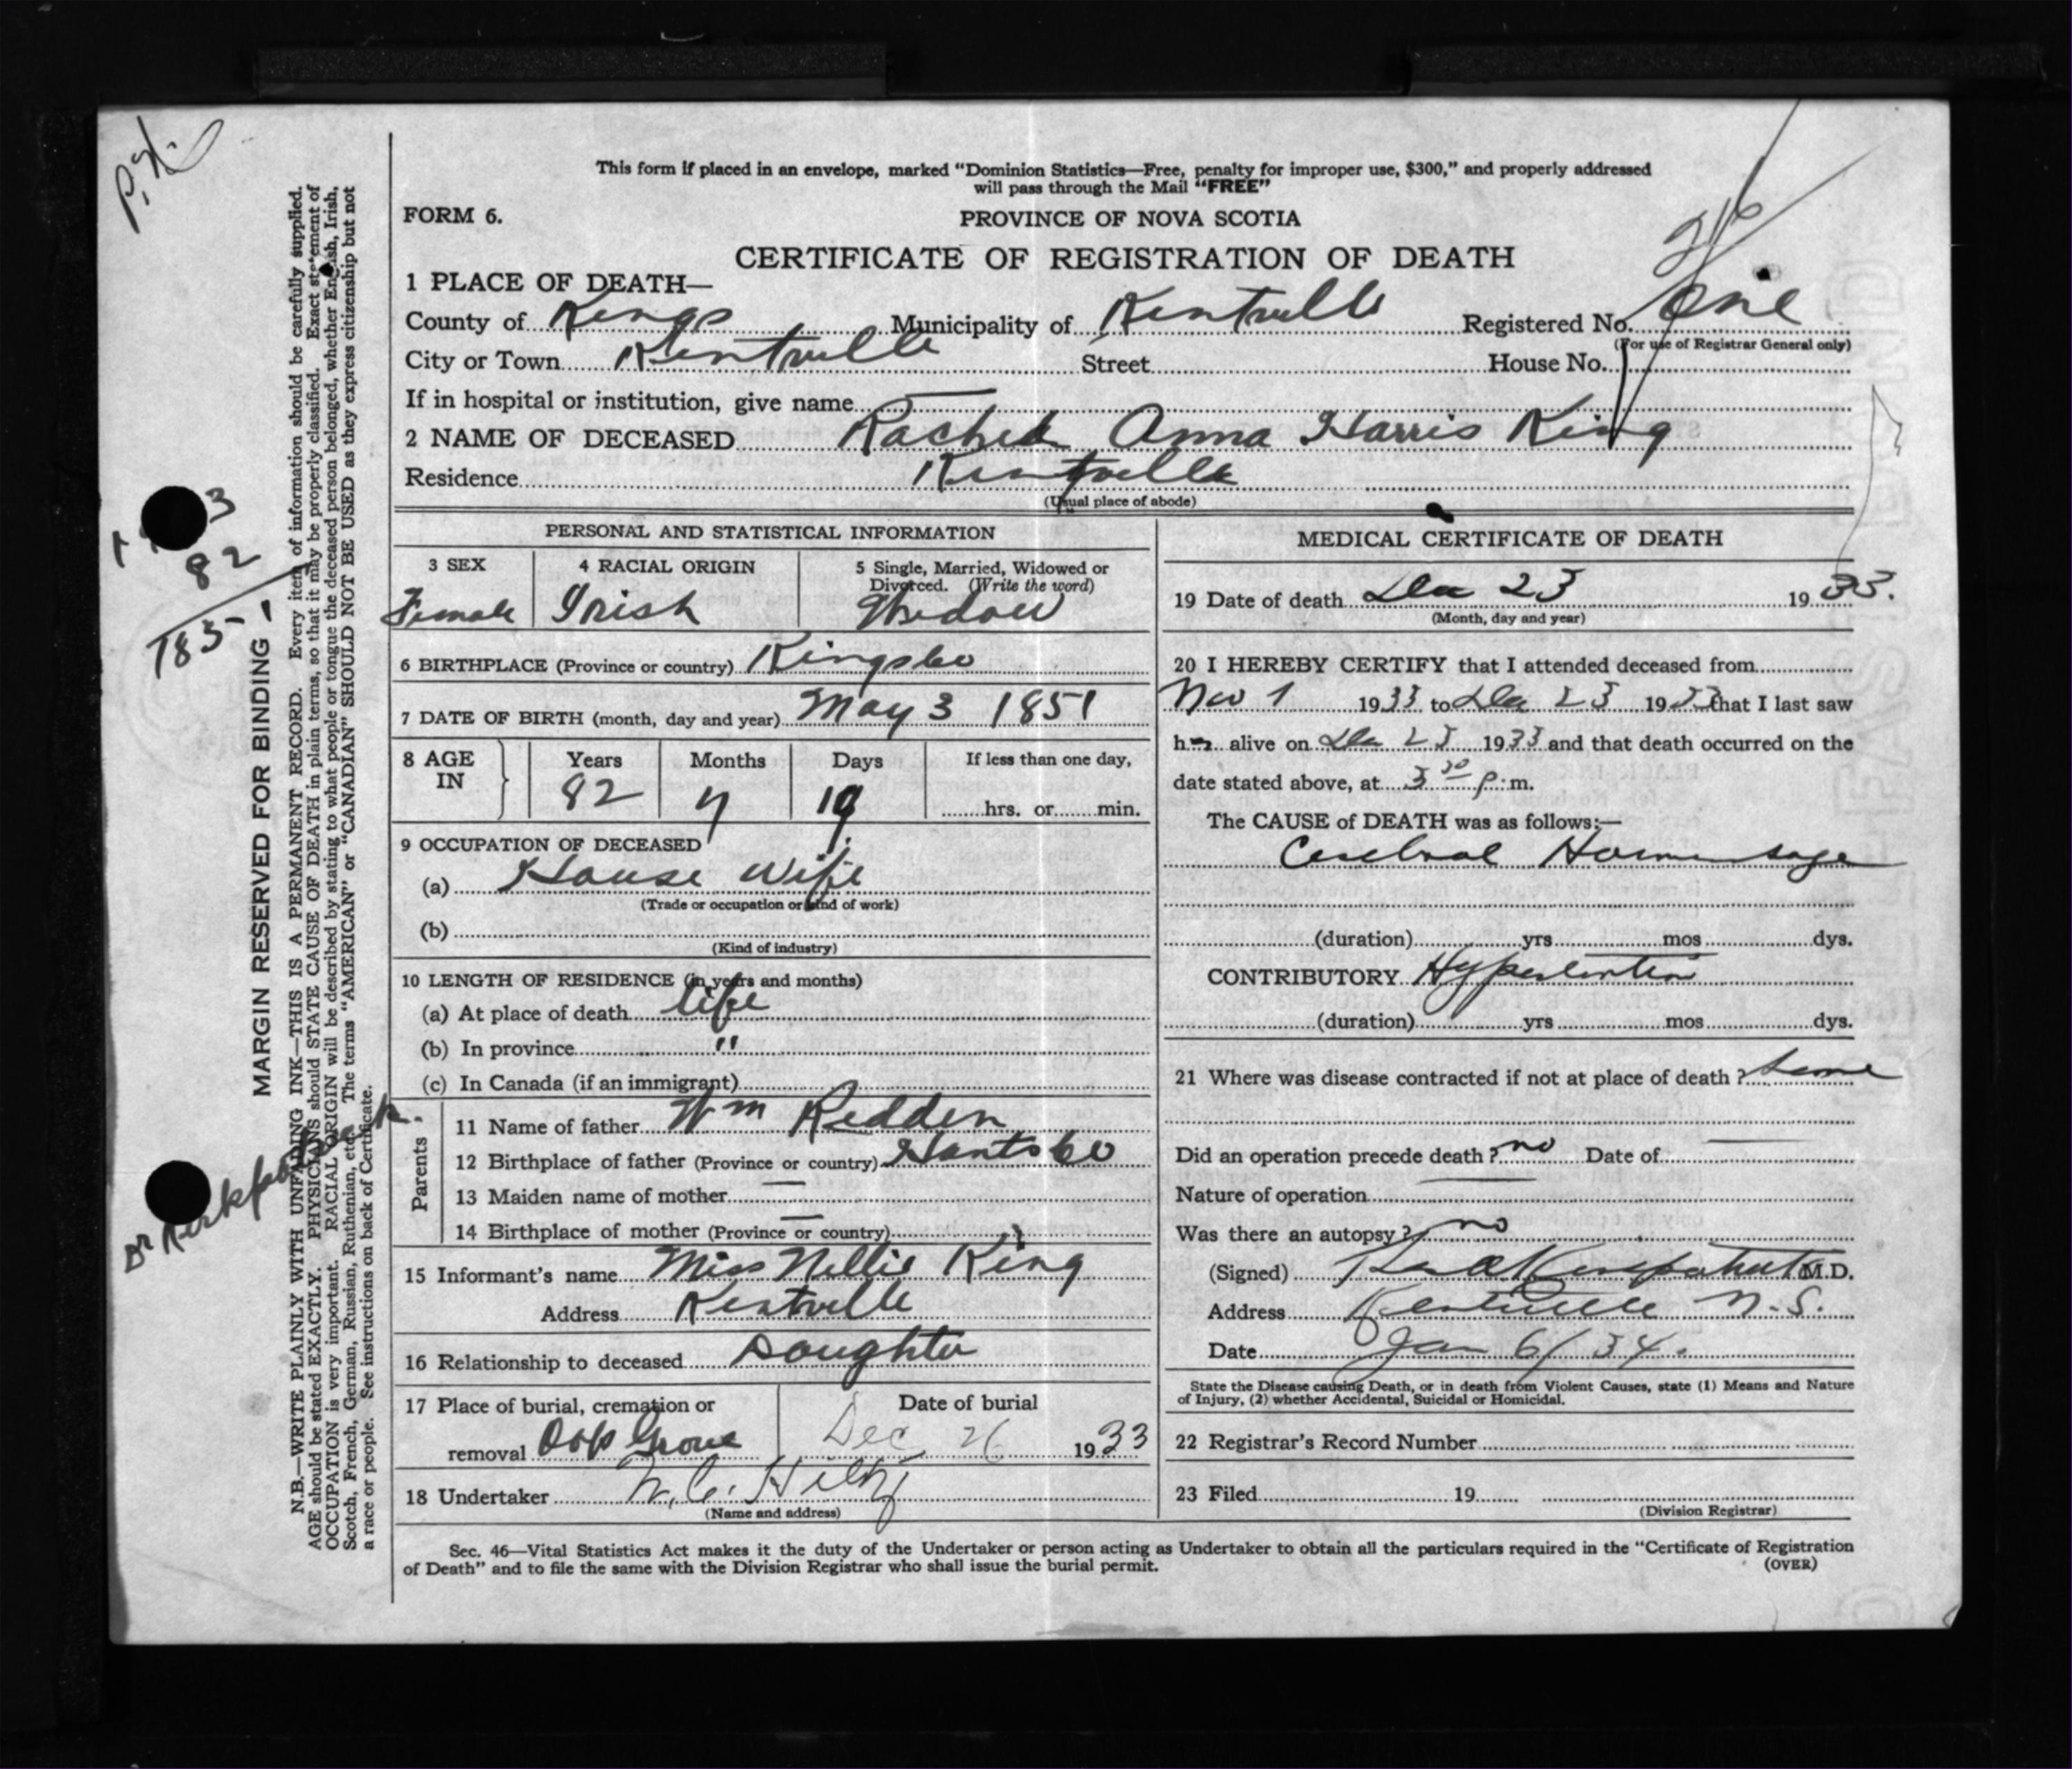 This form if placed in an envelope, marked "Dominion Statistics—Free, penalty for improper use, $300," and properly addressed
will pass through the Mail "FREE"
FORM 6.
PROVINCE OF NOVA SCOTIA
CERTIFICATE OF REGISTRATION OF DEATH
1 PLACE OF DEATH—
County of Kings Municipality of Kentville Registered No. One
(For use of Registrar General only)
City or Town Kentville Street House No.
If in hospital or institution, give name
2 NAME OF DECEASED Rachel Anna Harris King
Residence Kentville
(Usual place of abode)
PERSONAL AND STATISTICAL INFORMATION
3 SEX 4 RACIAL ORIGIN 5 Single, Married, Widowed or
Divorced. (Write the word)
Female Irish Widow
6 BIRTHPLACE (Province or country) Kings Co
7 DATE OF BIRTH (month, day and year) May 3 1851
8 AGE IN Years Months Days If less than one day,
82 7 19 hrs. or min.
9 OCCUPATION OF DECEASED
(a) House Wife
(Trade or occupation or kind of work)
(b)
(Kind of industry)
10 LENGTH OF RESIDENCE (in years and months)
(a) At place of death life
(b) In province "
(c) In Canada (if an immigrant)
Parents
11 Name of father Wm Redden
12 Birthplace of father (Province or country) Hants Co
13 Maiden name of mother —
14 Birthplace of mother (Province or country) —
15 Informant's name Miss Nellie King
Address Kentville
16 Relationship to deceased Daughter
17 Place of burial, cremation or Date of burial
removal Oak Grove Dec 26 1933
18 Undertaker W. C. Hiltz
(Name and address)
MEDICAL CERTIFICATE OF DEATH
19 Date of death Dec 23 1933.
(Month, day and year)
20 I HEREBY CERTIFY that I attended deceased from
Nov 1 1933 to Dec 23 1933 that I last saw
her alive on Dec 23 1933 and that death occurred on the
date stated above, at 3 30 p.m.
The CAUSE of DEATH was as follows:—
Cerebral Hormorhage
(duration) yrs mos dys.
CONTRIBUTORY Hypertention
(duration) yrs mos dys.
21 Where was disease contracted if not at place of death? Same
Did an operation precede death? no Date of —
Nature of operation —
Was there an autopsy? no
(Signed) Kirkpatrick M.D.
Address Kentville N.S.
Date Jan 6/34.
State the Disease causing Death, or in death from Violent Causes, state (1) Means and Nature
of Injury, (2) whether Accidental, Suicidal or Homicidal.
22 Registrar's Record Number
23 Filed 19
(Division Registrar)
Sec. 46—Vital Statistics Act makes it the duty of the Undertaker or person acting as Undertaker to obtain all the particulars required in the "Certificate of Registration
of Death" and to file the same with the Division Registrar who shall issue the burial permit.
(OVER)
MARGIN RESERVED FOR BINDING
N.B.—WRITE PLAINLY WITH UNFADING INK—THIS IS A PERMANENT RECORD. Every item of information should be carefully supplied.
AGE should be stated EXACTLY. PHYSICIANS should STATE CAUSE OF DEATH in plain terms, so that it may be properly classified. Exact statement of
OCCUPATION is very important. RACIAL ORIGIN will be described by stating to what people or tongue the deceased person belonged, whether English, Irish,
Scotch, French, German, Russian, Ruthenian, etc. The terms "AMERICAN" or "CANADIAN" SHOULD NOT BE USED as they express citizenship but not
a race or people. See instructions on back of Certificate.
3
82
1851
Dr Kirkpatrick.